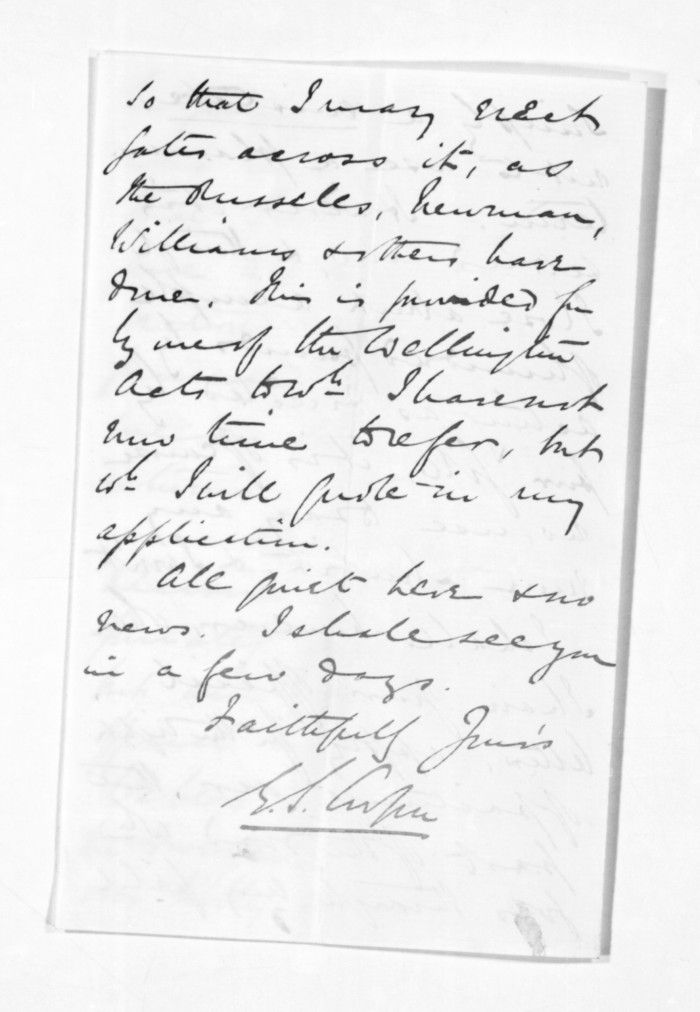 so that I may erect
gates across it, as
the Russells, Newman,
Williams & others have
done. This is provided for
by one of the Wellington
Acts to wh. I have not
now time to refer, but
wh. I will quote in my
application.
All quiet here & no
news. I shall see you
in a few days.
Faithfully Yours
G. S. Cooper